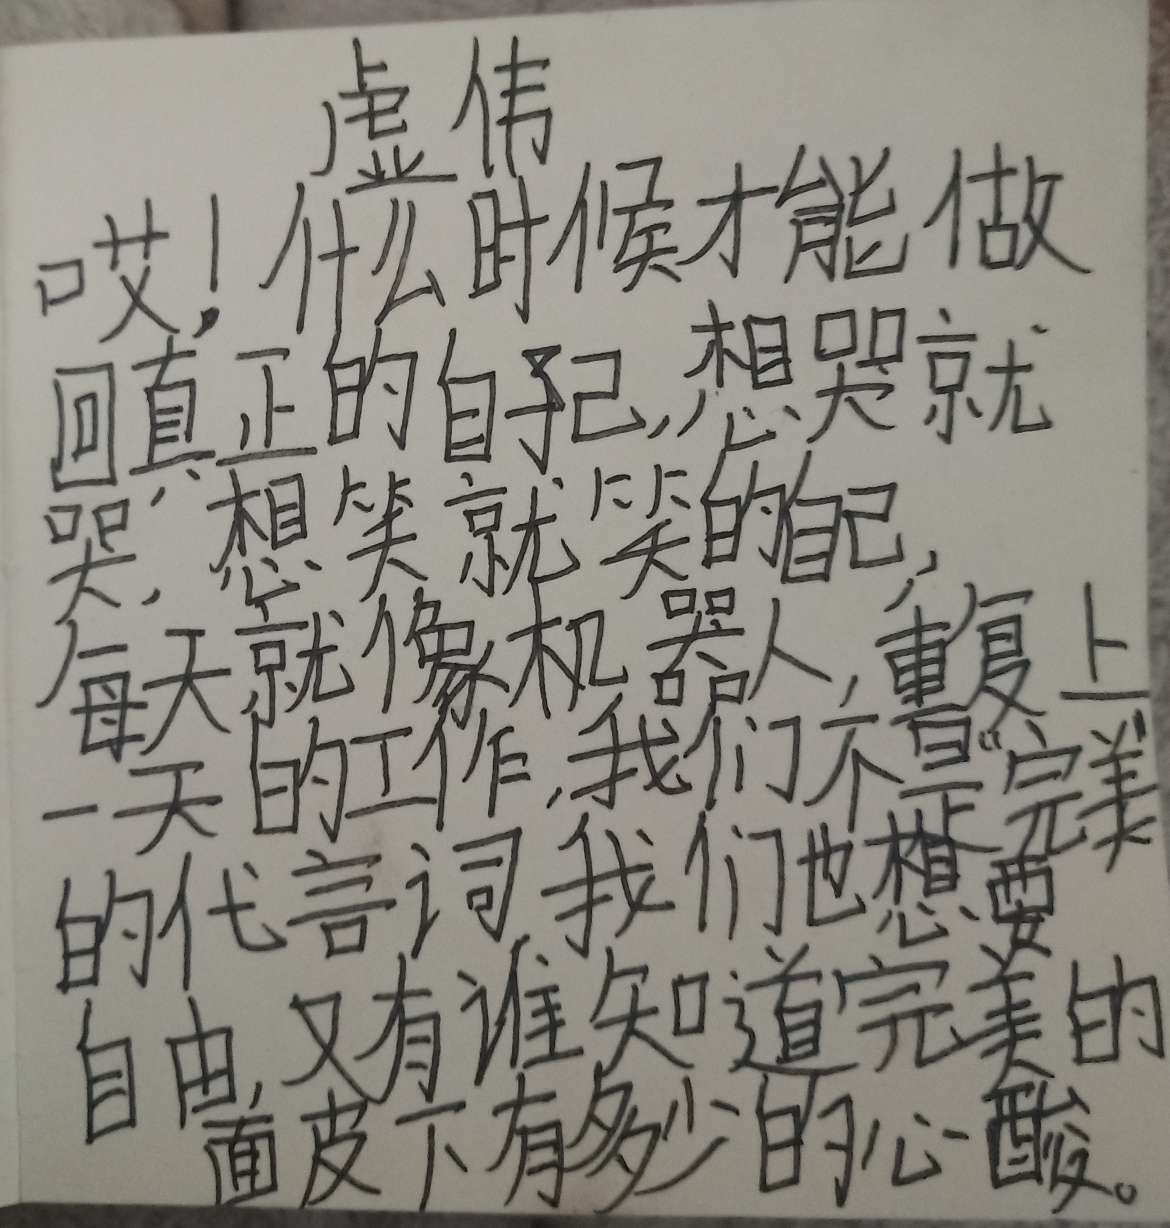 虚伟
哎！什么时候才能做
回真正的自己,想哭就
哭,想笑就笑的自己,
每天就像机器人,重复上
一天的工作,我们不是“完美”
的代言词,我们也想要
自由,又有谁知道完美的
面皮下有多少的心酸。